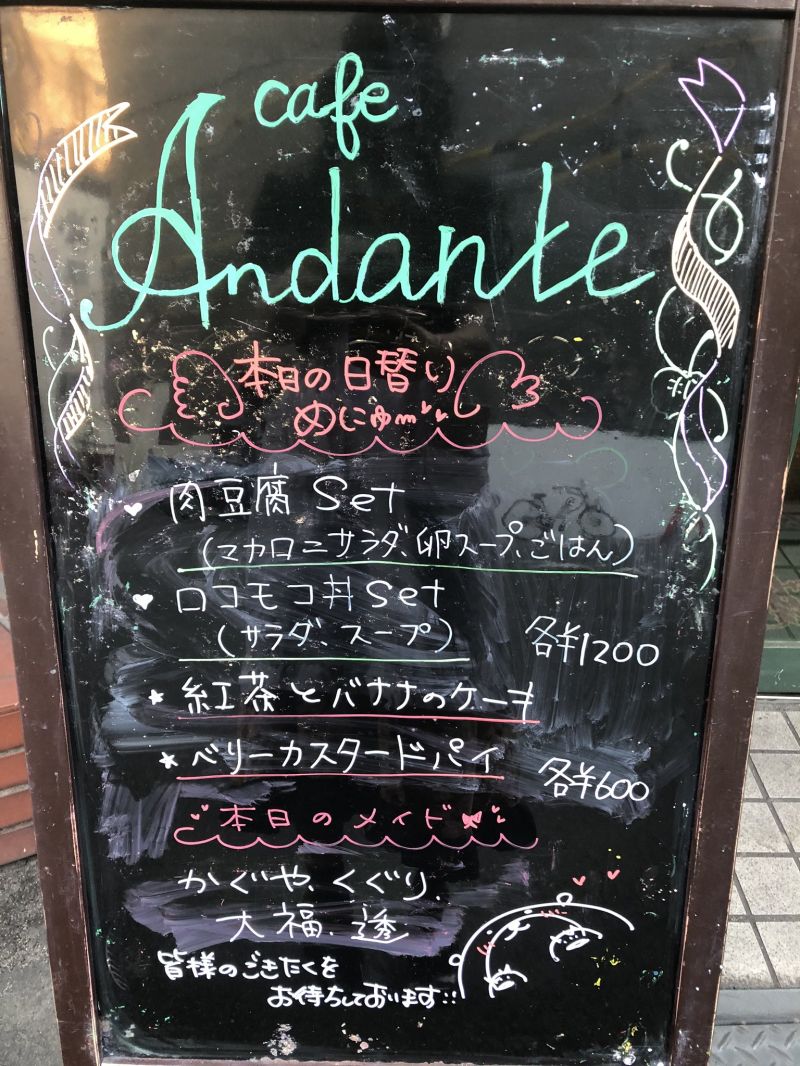 cafe
Andante
本日の日替り
めにゅー
肉豆腐 Set
(マカロニサラダ、卵スープ、ごはん)
ロコモコ丼 Set
(サラダ、スープ) 各¥1200
紅茶とバナナのケーキ
ベリーカスタードパイ 各¥600
本日のメイド
かぐや、くぐり、
大福、透
皆様のごきたくを
お待ちしております!!